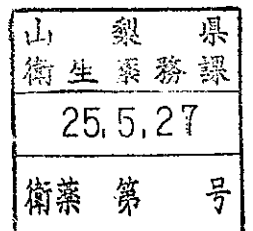 山梨県
衛生薬務課
25.5.27
衛薬第 号